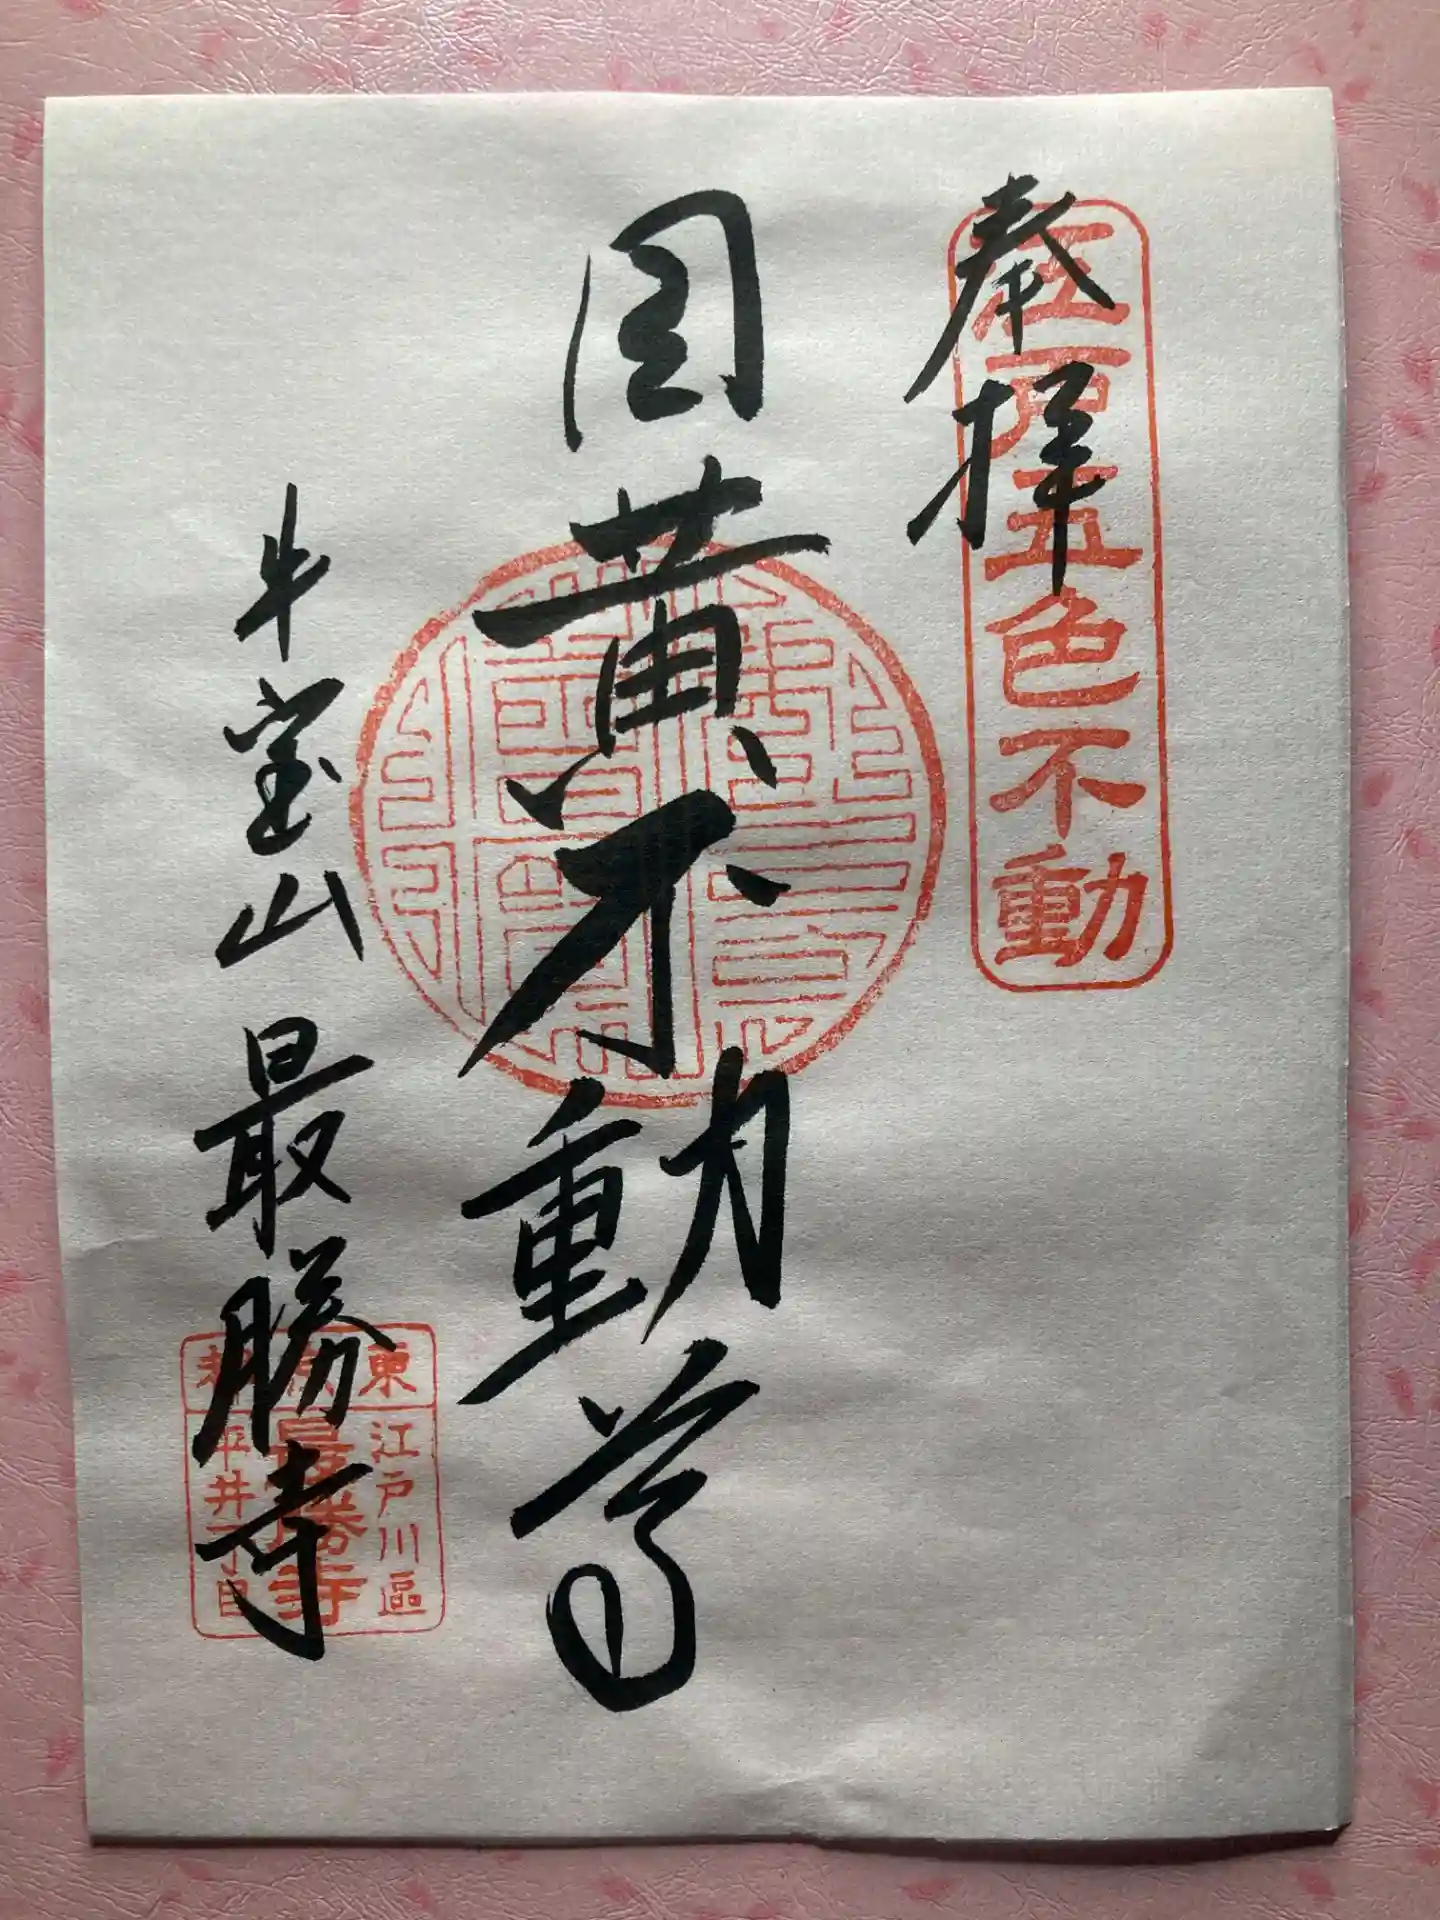 奉拝
江戸五色不動
目黄不動尊
牛宝山 最勝寺
東京
江戸川區
最勝寺
平井一丁目